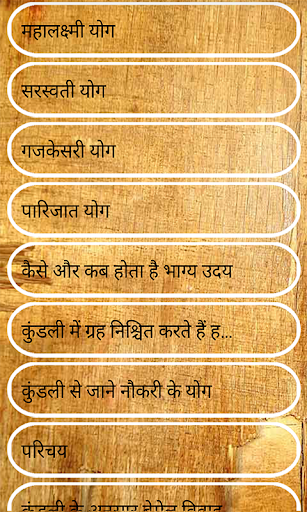 महालक्ष्मी योग
सरस्वती योग
गजकेसरी योग
पारिजात योग
कैसे और कब होता है भाग्य उदय
कुंडली में ग्रह निश्चित करते हैं ह...
कुंडली से जाने नौकरी के योग
परिचय
कुंडली के अनुसार बेमेल विवाह